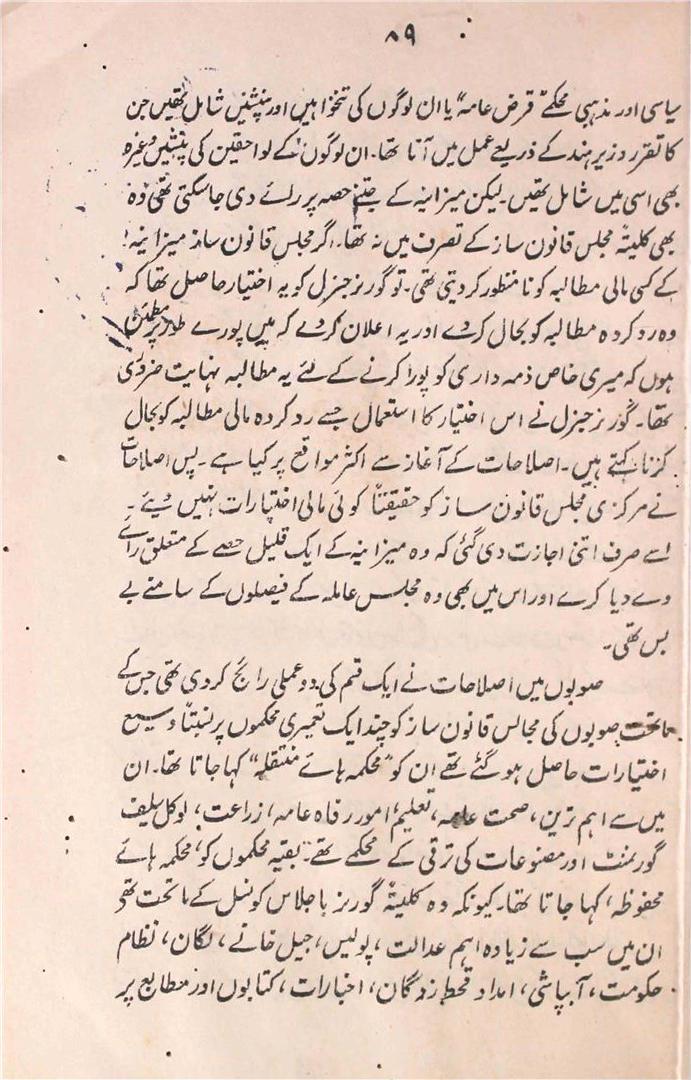 ۸۹
سیاسی اور مذہبی محکمے "قرض عامہ" یا ان لوگوں کی تنخواہیں اور پنشنیں شامل تھیں جن
کا تقرر وزیر ہند کے ذریعے عمل میں آتا تھا۔ ان لوگوں کے لواحقین کی پنشیں وغیرہ
بھی اسی میں شامل تھیں۔ لیکن میزانیہ کے جتنے حصہ پر رائے دی جاسکتی تھی وہ
بھی کلیتہً مجلس قانون ساز کے تصرف میں نہ تھا۔ اگر مجلس قانون ساز میزانیہ
کے کسی مالی مطالبہ کو نامنظور کر دیتی تھی۔ تو گورنر جنرل کو یہ اختیار حاصل تھا کہ
وہ رد کردہ مطالبہ کو بحال کردے اور یہ اعلان کردے کہ میں پورے طور پر مطمئن
ہوں کہ میری خاص ذمہ داری کو پورا کرنے کے لئے یہ مطالبہ نہایت ضروری
تھا۔ گورنر جنرل نے اس اختیار کا استعمال جسے رد کردہ مالی مطالبہ کو بحال
کرنا کہتے ہیں۔ اصلاحات کے آغاز سے اکثر مواقع پر کیا ہے۔ پس اصلاحات
نے مرکزی مجلس قانون ساز کو حقیقتاً کوئی مالی اختیارات نہیں دیئے۔
اسے صرف اتنی اجازت دی گئی کہ وہ میزانیہ کے ایک قلیل حصے کے متعلق رائے
دے دیا کرے اور اس میں بھی وہ مجلس عاملہ کے فیصلوں کے سامنے بے
بس تھی۔
صوبوں میں اصلاحات نے ایک قسم کی دو عملی رائج کردی تھی جس کے
ماتحت صوبوں کی مجالس قانون ساز کو چند ایک تعمیری محکموں پر نسبتاً وسیع
اختیارات حاصل ہو گئے تھے ان کو "محکمہ ہائے منتقلہ" کہا جاتا تھا۔ ان
میں سے اہم ترین، صحت عامہ، تعلیم، امور رفاہ عامہ، زراعت، لوکل سیلف
گورمنٹ اور مصنوعات کی ترقی کے محکمے تھے۔ بقیہ محکموں کو، محکمہ ہائے
محفوظہ، کہا جاتا تھا۔ کیونکہ وہ کلیتہً گورنر باجلاس کونسل کے ماتحت تھے
ان میں سب سے زیادہ اہم عدالت، پولیس، جیل خانے، لگان، نظام
حکومت، آبپاشی، امداد قحط زدگان، اخبارات، کتابوں اور مطابع پر